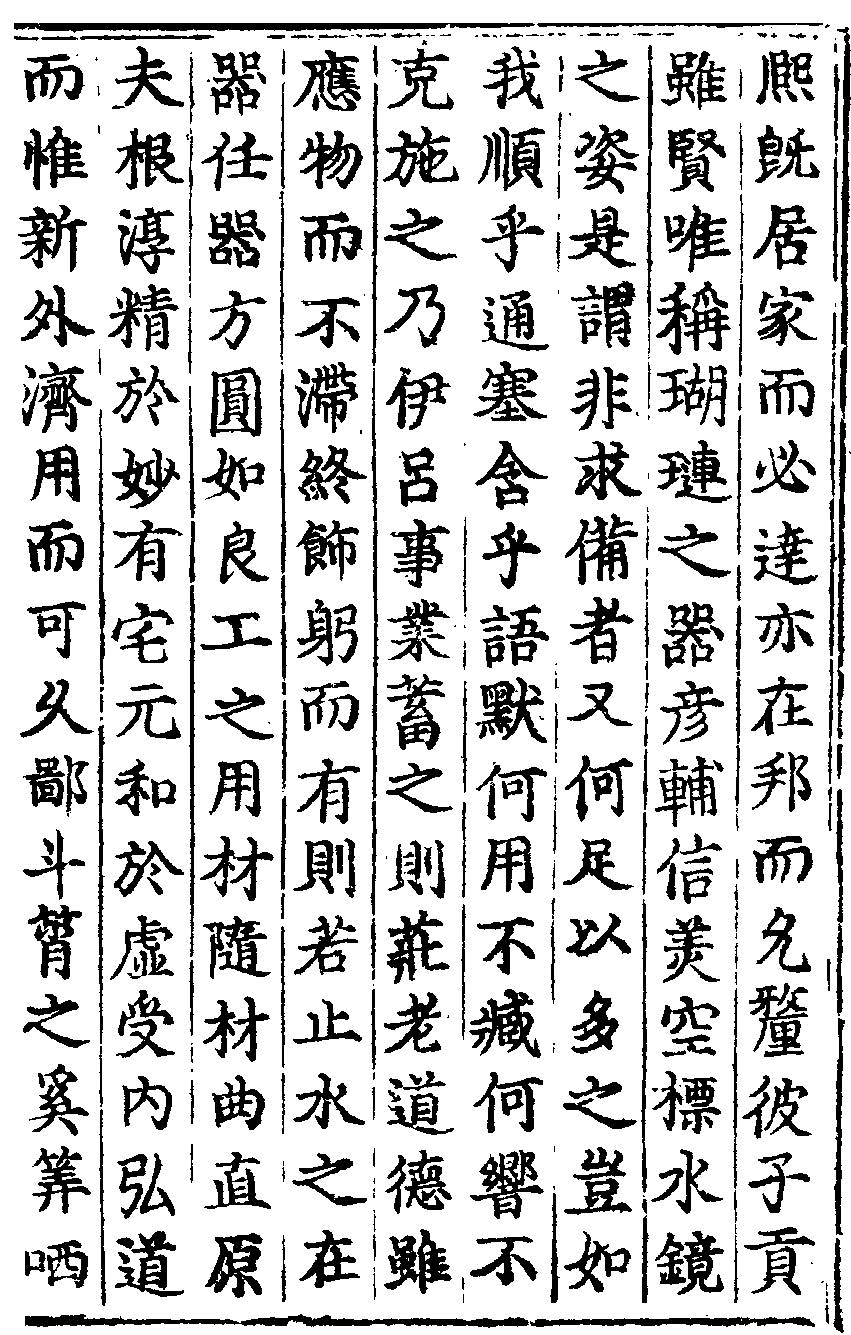 熈既居家而必達亦在邦而允釐彼子貢
雖賢唯稱瑚璉之器彦輔信羙空標水鏡
之姿是謂非求備者又何足以多之豈如
我順乎通塞含乎語默何用不臧何響不
克施之乃伊呂事業蓄之則莊老道德雖
應物而不滯終飾躬而有則若止水之在
器任器方圓如良工之用材隨材曲直原
夫根淳精於妙有宅元和於虛受内弘道
而惟新外濟用而可久鄙斗筲之奚筭哂